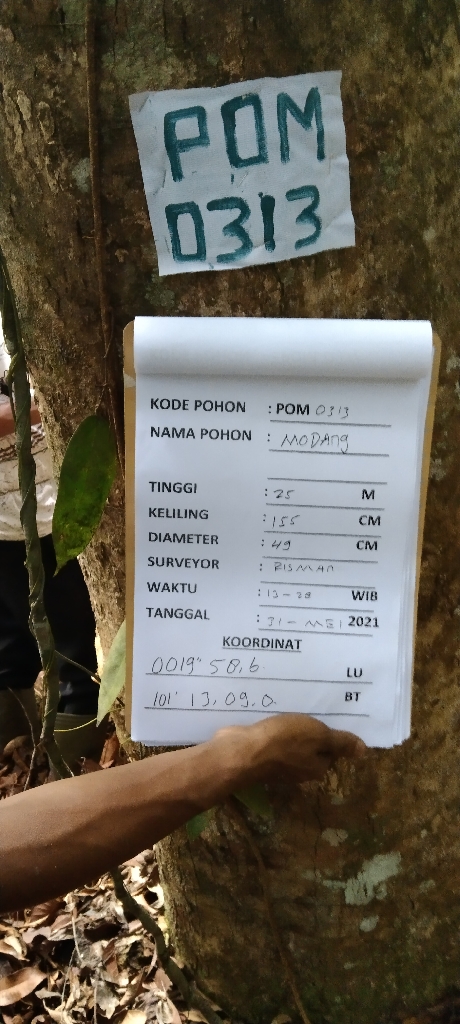 POM
0313
KODE POHON : POM 0313
NAMA POHON : MODANG
TINGGI : 25 M
KELILING : 155 CM
DIAMETER : 49 CM
SURVEYOR : RISMAN
WAKTU : 13-28 WIB
TANGGAL : 31 - MEI 2021
KOORDINAT
0019" 58,6 LU
101' 13,09,0 BT